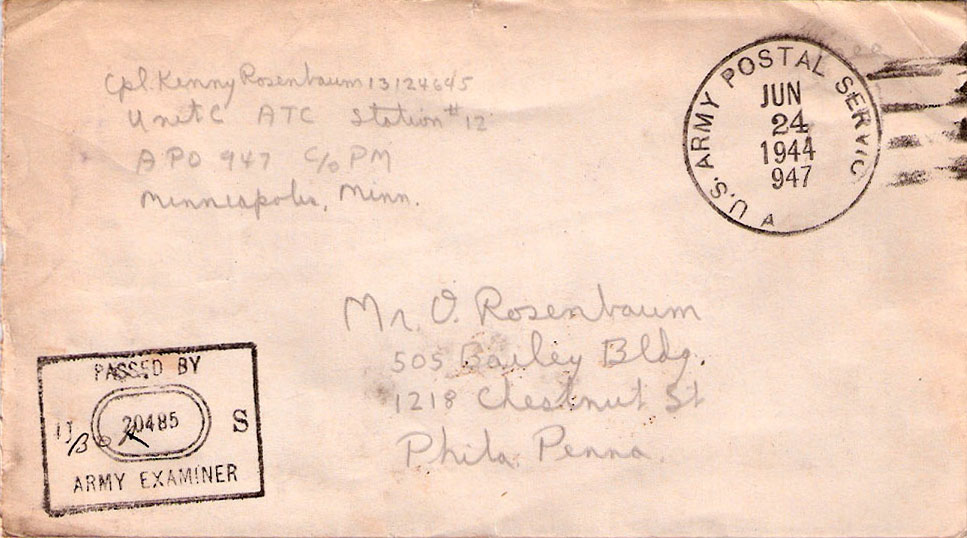 Cpl. Kenny Rosenbaum 13124645
Unit C ATC Station #12
APO 947 C/o PM
Minneapolis, Minn.
U.S. ARMY POSTAL SERVIC
A
JUN
24
1944
947
Mr. O. Rosenbaum
505 Bailey Bldg.
1218 Chestnut St
Phila. Penna.
PASSED BY
20485
S
ARMY EXAMINER